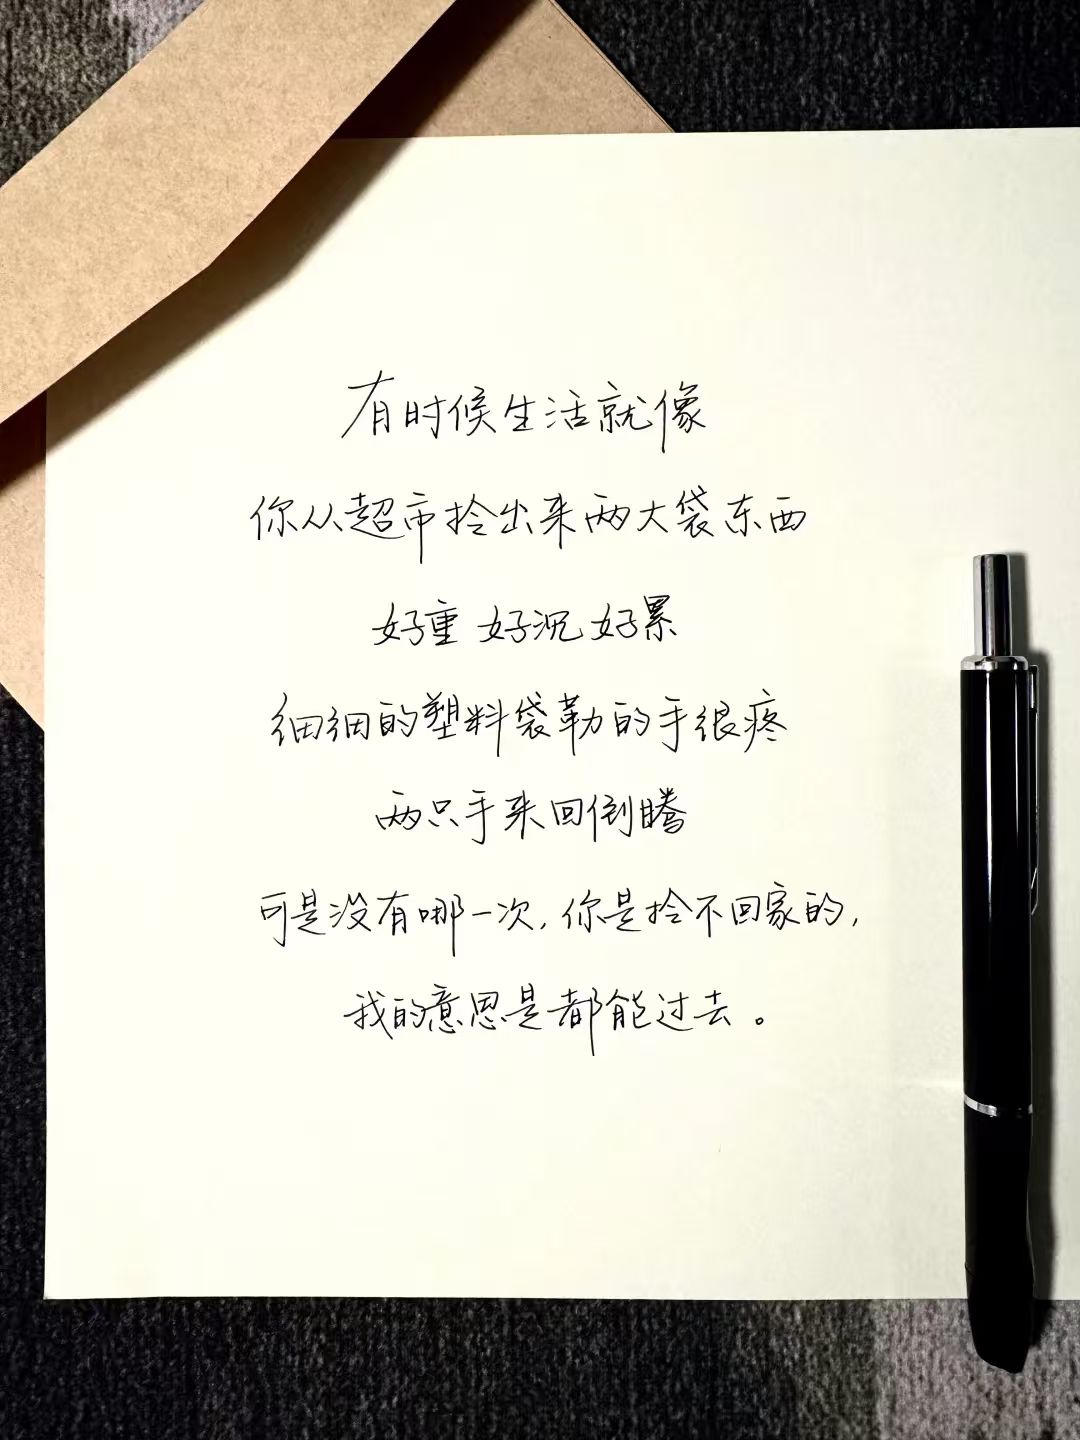 有时候生活就像
你从超市拎出来两大袋东西
好重 好沉 好累
细细的塑料袋勒的手很疼
两只手来回倒腾
可是没有哪一次,你是拎不回家的,
我的意思是都能过去。